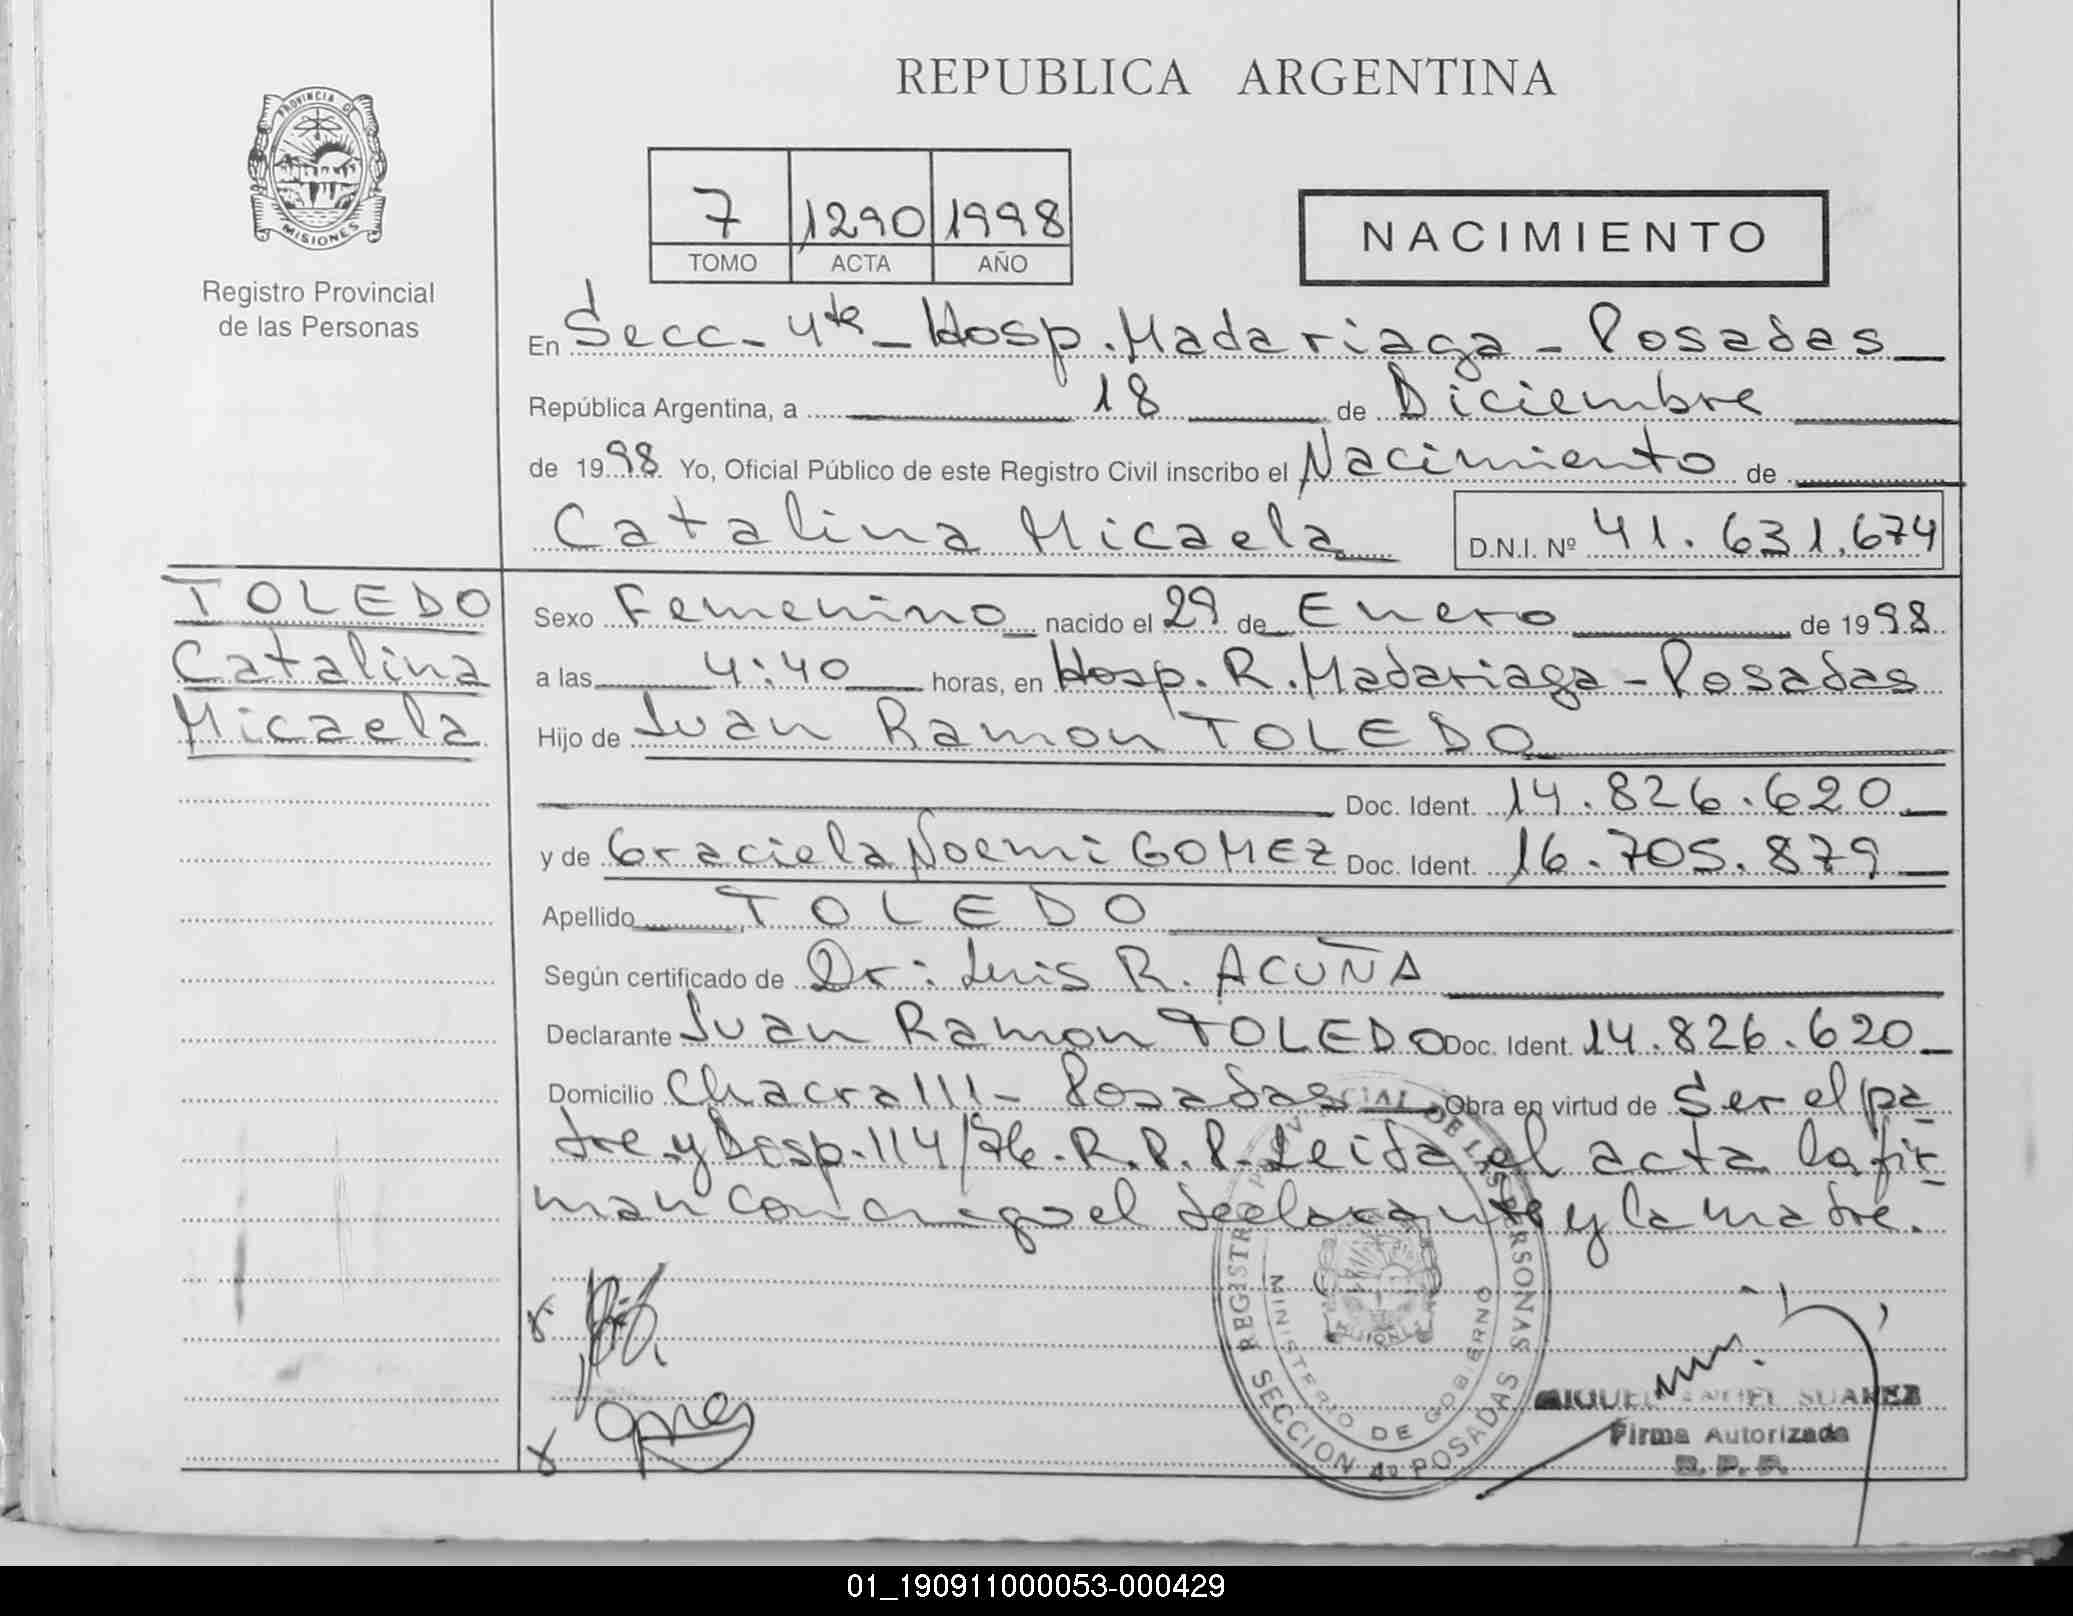 REPUBLICA ARGENTINA
PROVINCIA DE
MISIONES
Registro Provincial
de las Personas
7 1290 1998
TOMO ACTA AÑO
NACIMIENTO
En Secc - 4ta - Hosp. Madariaga - Posadas
República Argentina, a 18 de Diciembre
de 1998 Yo, Oficial Público de este Registro Civil inscribo el Nacimiento de
Catalina Micaela D.N.I. Nº 41.631.674
TOLEDO
Catalina
Micaela
Sexo Femenino nacido el 29 de Enero de 1998
a las 4:40 horas, en Hosp. R. Madariaga - Posadas
Hijo de Juan Ramon TOLEDO
Doc. Ident. 14.826.620
y de Graciela Noemi GOMEZ Doc. Ident. 16.705.879
Apellido TOLEDO
Según certificado de Dr: Luis R. ACUÑA
Declarante Juan Ramon TOLEDO Doc. Ident. 14.826.620
Domicilio Chacra 111 - Posadas Obra en virtud de Ser el pa-
dre y Disp. 114/76. R.P.P. Leida el acta la fir-
man conmigo el declarante y la madre.
REGISTRO PROVINCIAL DE LAS PERSONAS
MINISTERIO DE GOBIERNO
SECCION 4a POSADAS
MIGUEL ANGEL SUAREZ
Firma Autorizada
R. P. P.
01_190911000053-000429